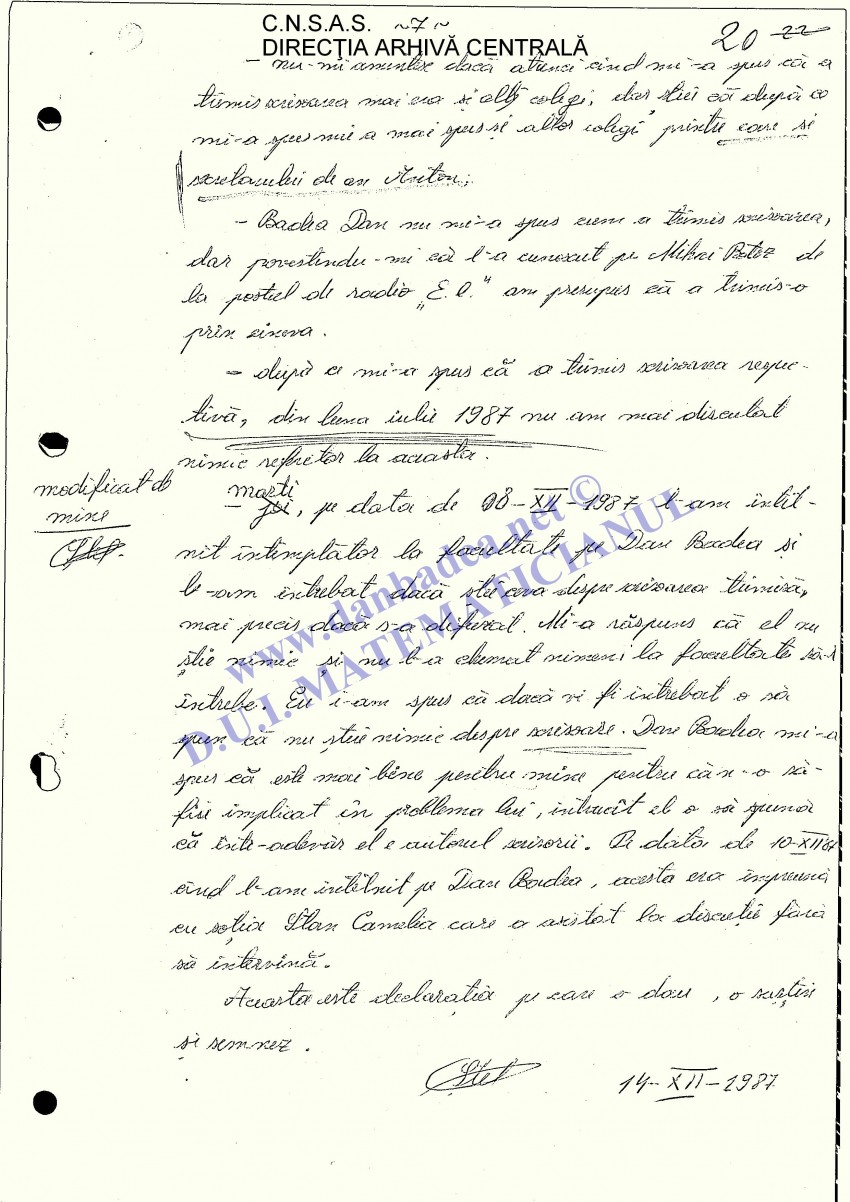 C.N.S.A.S. ~7~
DIRECŢIA ARHIVĂ CENTRALĂ
20 22
- nu-mi amintesc dacă atunci cînd mi-a spus că a
trimis scrisoarea mai era și alți colegi, dar știu că după ce
mi-a spus mie a mai spus și altor colegi printre care și
secretarului de an Anton;
- Badea Dan nu mi-a spus cum a trimis scrisoarea,
dar povestindu-mi că l-a cunoscut pe Mihai Botez de
la postul de radio „E.L." am presupus că a trimis-o
prin cineva.
- după ce mi-a spus că a trimis scrisoarea respec-
tivă, din luna iulie 1987 nu am mai discutat
nimic referitor la aceasta.
modificat de
mine
marți
- joi, pe data de 08-XII-1987 l-am întîl-
nit întîmplător la facultate pe Dan Badea și
l-am întrebat dacă știe ceva despre scrisoarea trimisă,
mai precis dacă s-a difuzat. Mi-a răspuns că el nu
știe nimic și nu l-a chemat nimeni la facultate să-l
întrebe. Eu i-am spus că dacă voi fi întrebat o să
spun că nu știu nimic despre scrisoare. Dan Badea mi-a
spus că este mai bine pentru mine pentru că n-o să
fiu implicat în problema lui, întrucît el o să spună
că într-adevăr el e autorul scrisorii. Pe data de 10-XII 87
cînd l-am întîlnit pe Dan Badea, acesta era împreună
cu soția Stan Camelia care a asistat la discuție fără
să intervină.
Aceasta este declarația pe care o dau, o susțin
și semnez.
14-XII-1987
www.danbadea.net ©
D.U.I. MATEMATICIANUL